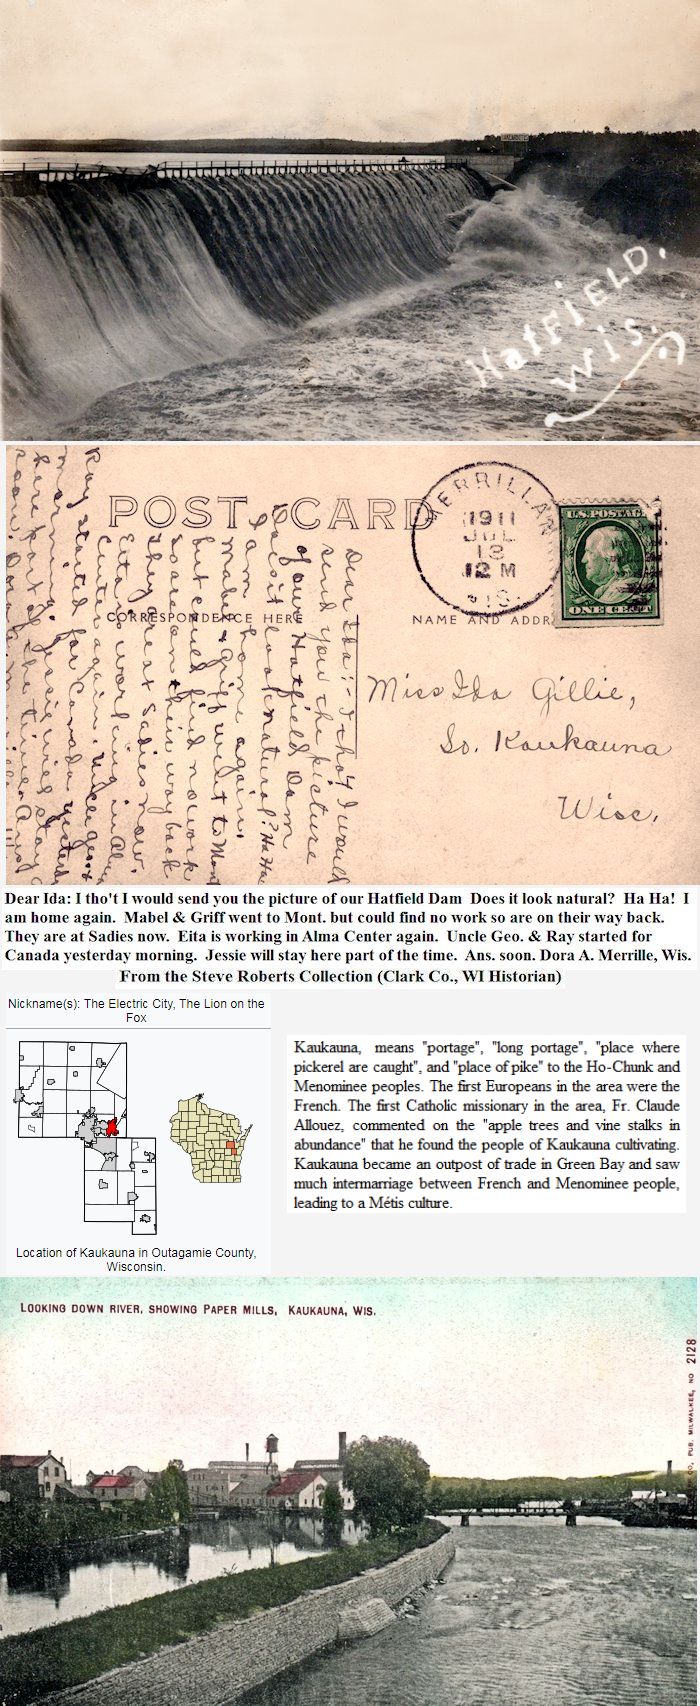 Hatfield,
Wis.
POST CARD
CORRESPONDENCE HERE
NAME AND ADDR
MERRILLAN
1911
JUL
13
12 M
WIS.
U.S. POSTAGE
ONE CENT
Dear Ida:- I tho't I would
send you the picture
of our Hatfield Dam
Does it look natural? Ha Ha
I am home again.
Mabel & Griff went to Mont
but could find no work
so are on their way back
They are at Sadies now.
Eita is working in Alma
Center again. Uncle Geo. &
Ray started for Canada yesterday
morning. Jessie will stay
here part of the time. Ans.
soon. Dora A.
Miss Ida Gillie,
So. Kaukauna
Wisc.
Dear Ida: I tho't I would send you the picture of our Hatfield Dam Does it look natural? Ha Ha! I
am home again. Mabel & Griff went to Mont. but could find no work so are on their way back.
They are at Sadies now. Eita is working in Alma Center again. Uncle Geo. & Ray started for
Canada yesterday morning. Jessie will stay here part of the time. Ans. soon. Dora A. Merrille, Wis.
From the Steve Roberts Collection (Clark Co., WI Historian)
Nickname(s): The Electric City, The Lion on the
Fox
Location of Kaukauna in Outagamie County,
Wisconsin.
Kaukauna, means "portage", "long portage", "place where
pickerel are caught", and "place of pike" to the Ho-Chunk and
Menominee peoples. The first Europeans in the area were the
French. The first Catholic missionary in the area, Fr. Claude
Allouez, commented on the "apple trees and vine stalks in
abundance" that he found the people of Kaukauna cultivating.
Kaukauna became an outpost of trade in Green Bay and saw
much intermarriage between French and Menominee people,
leading to a Métis culture.
LOOKING DOWN RIVER, SHOWING PAPER MILLS, KAUKAUNA, WIS.
O, PUB. MILWAUKEE, NO 2128